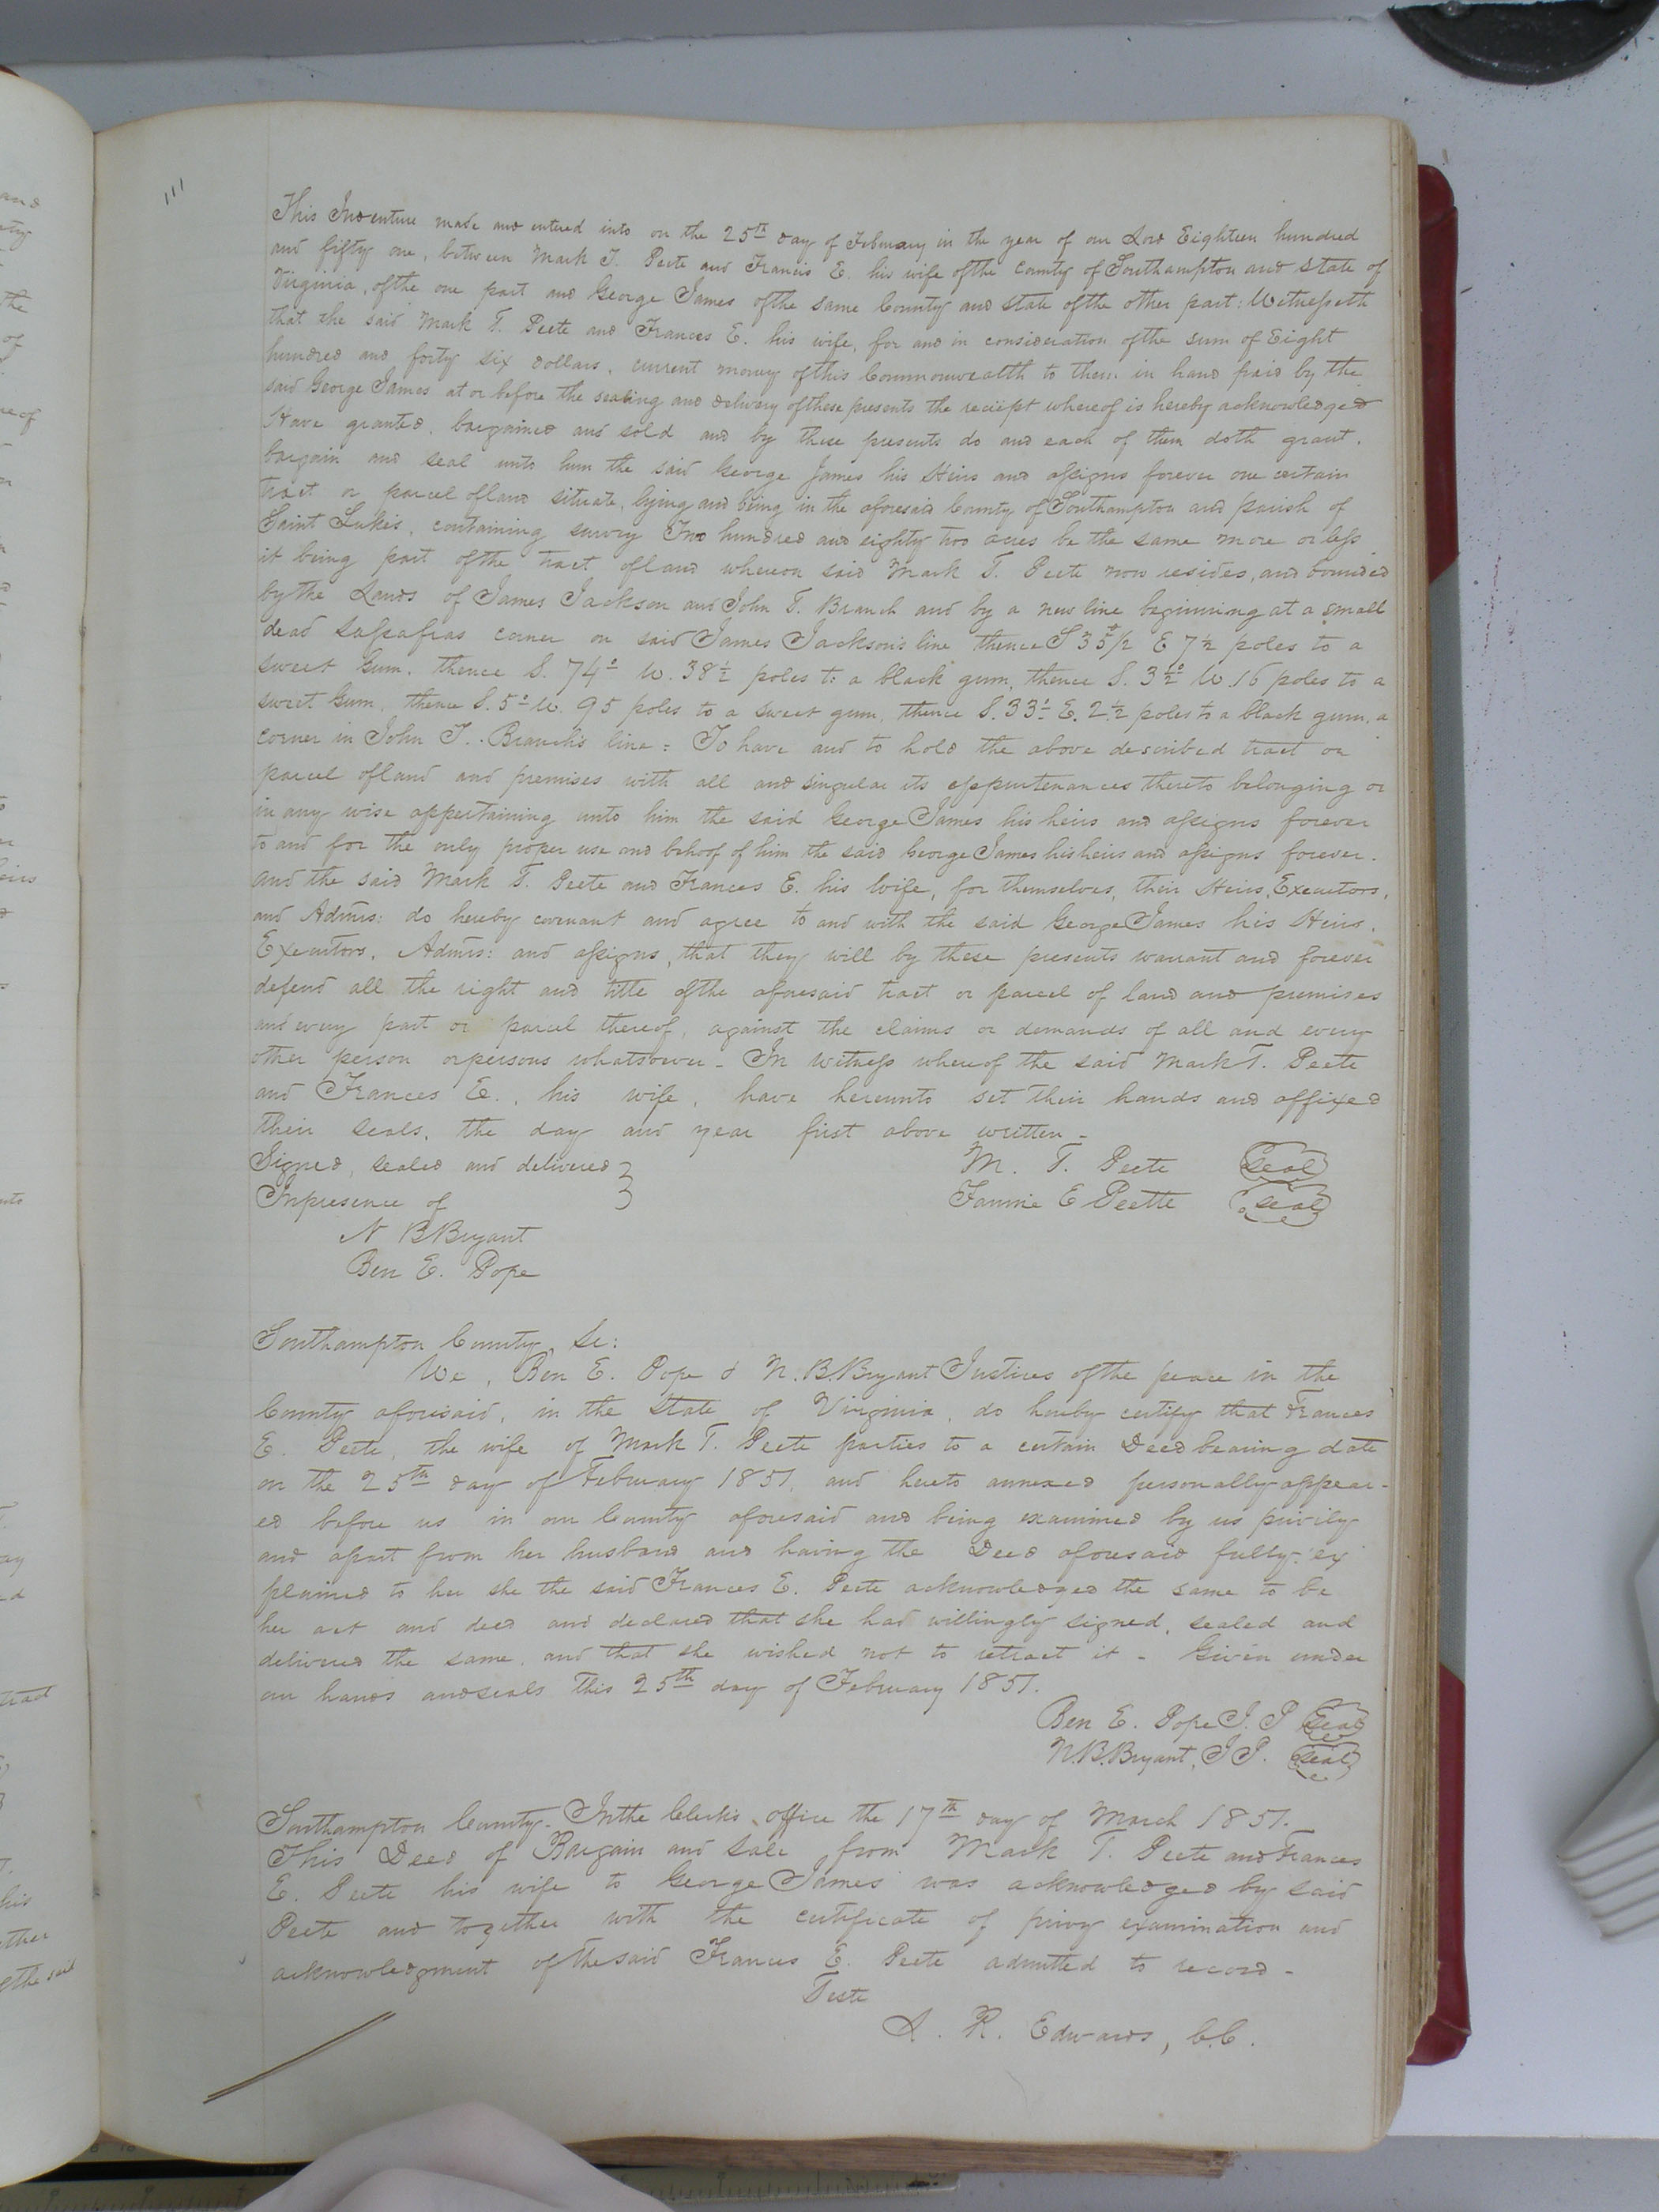 111
This Indenture made and entered into on the 25th day of February in the year of our Lord Eighteen hundred
and fifty one, between Mark T. Peete and Francis E. his wife of the County of Southampton and State of
Virginia, of the one part and George James of the same County and state of the other part: Witnesseth
that the said Mark T. Peete and Frances E. his wife, for and in consideration of the sum of Eight
hundred and forty six dollars, current money of this Commonwealth to them in hand paid by the
said George James at or before the sealing and delivery of these presents the reciept whereof is hereby acknowledged
Have granted, bargained and sold and by these presents do and each of them doth grant,
bargain and seal unto him the said George James his Heirs and assigns forever one certain
tract or parcel of land situate, lying and being in the aforesaid County of Southampton and parish of
Saint Lukes, containing survey Two hundred and eighty two acres be the same more or less
it being part of the tract of land whereon said Mark T. Peete now resides, and bounded
by the Lands of James Jackson and John T. Branch and by a new line beginning at a small
dead sassafras corner on said James Jackson's line thence S 35°/2 E 7½ poles to a
sweet Gum, thence S. 74° W. 38½ poles to a black gum, thence S. 3½° W. 16 poles to a
sweet Gum, thence S. 5° W. 95 poles to a sweet gum, thence S. 33° E. 2½ poles to a black gum, a
corner in John T. Branch's line: To have and to hold the above described tract or
parcel of land and premises with all and singular its appurtenances thereto belonging or
in any wise appertaining unto him the said George James his heirs and assigns forever
to and for the only proper use and behoof of him the said George James his heirs and assigns forever.
and the said Mark T. Peete and Frances E. his Wife, for themselves, their Heirs, Executors,
and Admrs: do hereby covenant and agree to and with the said George James his Heirs,
Executors, Admrs: and assigns, that they will by these presents warrant and forever
defend all the right and title of the aforesaid tract or parcel of land and premises
and every part or parcel thereof, against the claims or demands of all and every
other person or persons whatsoever - In witness whereof the said Mark T. Peete
and Frances E., his wife, have hereunto set their hands and affixed
their seals, the day and year first above written -
Signed, sealed and delivered } M. T. Peete seal
In presence of Fannie E Peette seal
N B Bryant
Ben E. Pope
Southampton County, Sc:
We, Ben E. Pope & N. B. Bryant Justices of the peace in the
County aforesaid, in the State of Virginia, do hereby certify that Frances
E. Peete, the wife of Mark T. Peete parties to a certain Deed bearing date
on the 25th day of February 1851, and hereto annexed personally appear-
ed before us in our County aforesaid and being examined by us privily
and apart from her husband and having the Deed aforesaid fully ex
plained to her she the said Frances E. Peete acknowledged the same to be
her act and deed and declared that she had willingly signed, sealed and
delivered the same, and that she wished not to retract it - Given under
our hands and seals this 25th day of February 1851.
Ben E. Pope J. P seal
N. B. Bryant, J P. seal
Southampton County - In the Clerk's office the 17th day of March 1851.
This Deed of Bargain and Sale from Mark T. Peete and Frances
E. Peete his wife to George James was acknowledged by said
Peete and together with the certificate of privy examination and
acknowledgment of the said Frances E. Peete admitted to record -
Teste
L. R. Edwards, C.C.